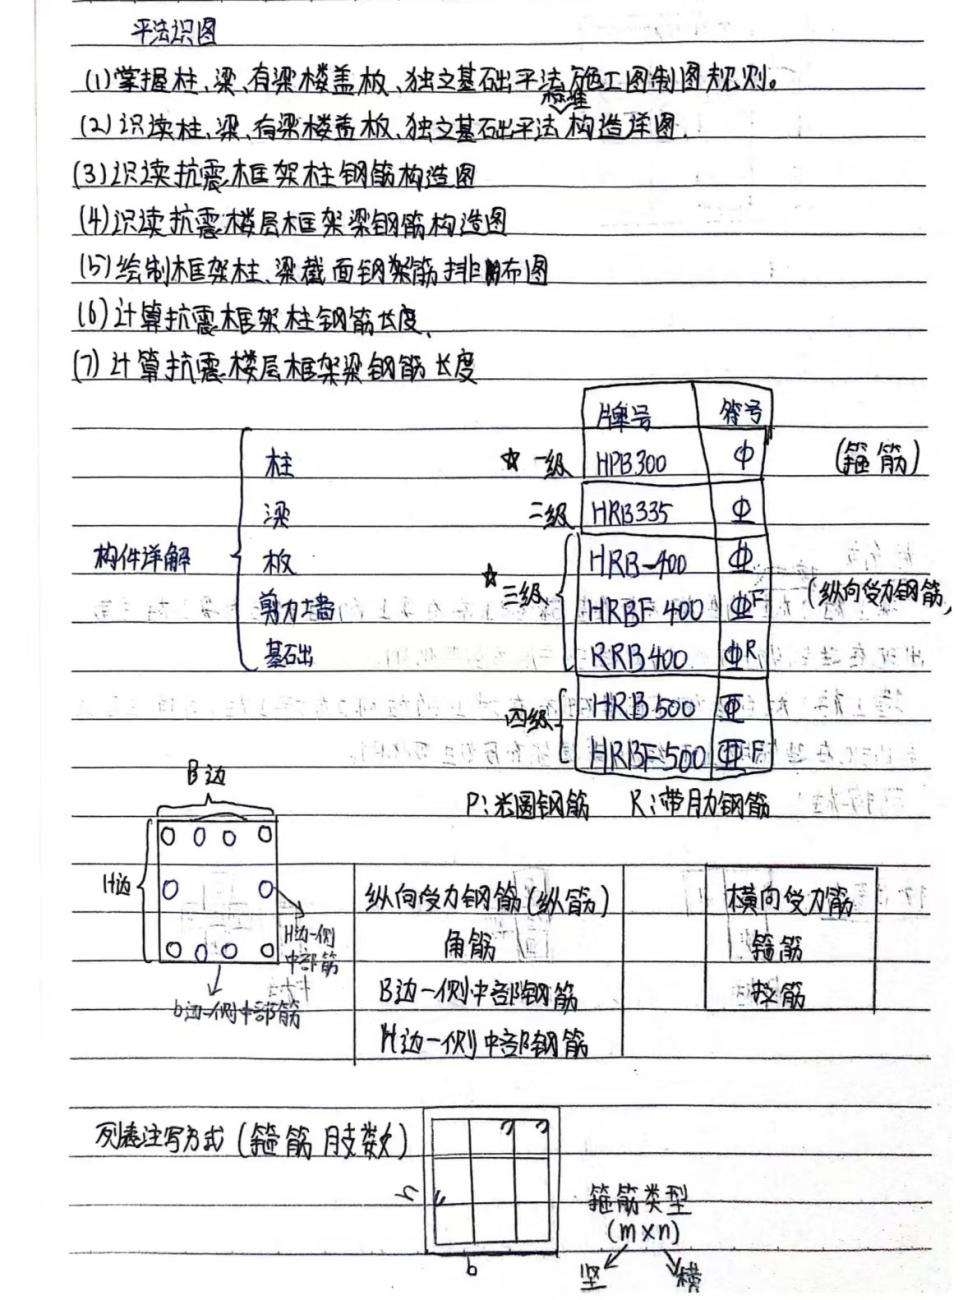 平法识图
(1)掌握柱、梁、有梁楼盖板、独立基础平法施工图制图规则。
标准
(2)识读柱、梁、有梁楼盖板、独立基础平法构造详图.
(3)识读抗震框架柱钢筋构造图
(4)识读抗震楼层框架梁钢筋构造图
(5)绘制框架柱、梁截面钢筋排布图
(6)计算抗震框架柱钢筋长度.
(7)计算抗震楼层框架梁钢筋长度
牌号 符号
柱 ☆一级 HPB300 Φ (箍筋)
梁 二级 HRB335 Φ
构件详解 板 ☆三级 HRB-400 Φ (纵向受力钢筋)
剪力墙 HRBF 400 Φ^F
基础 RRB400 Φ^R
四级 HRB500 Φ
HRBF500 Φ^F
P:光圆钢筋 R:带肋钢筋
B边
H边
H边一侧
中部筋
b边一侧中部筋
纵向受力钢筋(纵筋)
角筋
B边一侧中部钢筋
H边一侧中部钢筋
横向受力筋
箍筋
拉筋
列表注写方式(箍筋肢数)
h
b
箍筋类型
(m×n)
竖 横